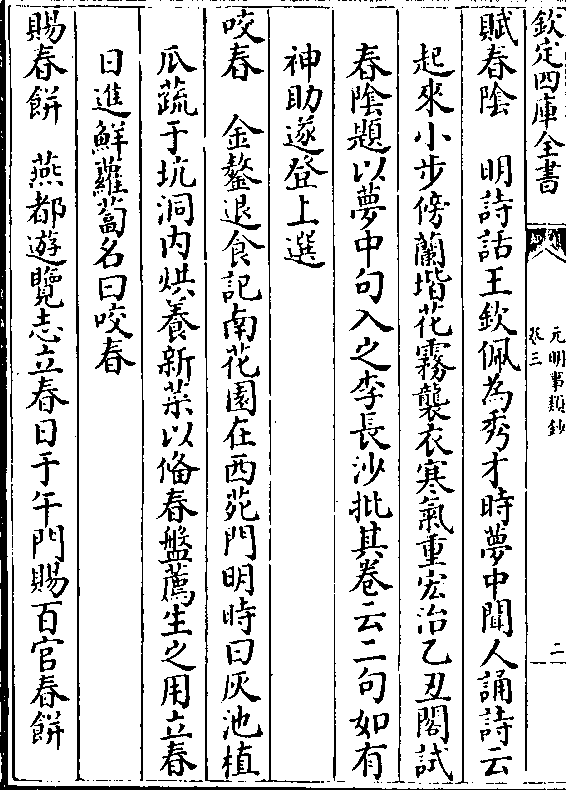 欽定四庫全書
元明事類鈔
卷三
二
賦春陰　明詩話王欽佩為秀才時夢中聞人誦詩云
起來小步傍蘭堦花霧襲衣寒氣重宏治乙丑閣試
春陰題以夢中句入之李長沙批其卷云二句如有
神助遂登上選
咬春　金鰲退食記南花園在西苑門明時曰灰池植
瓜蔬于坑洞内烘養新菜以備春盤薦生之用立春
日進鮮蘿蔔名曰咬春
賜春餅　燕都遊覽志立春日于午門賜百官春餅